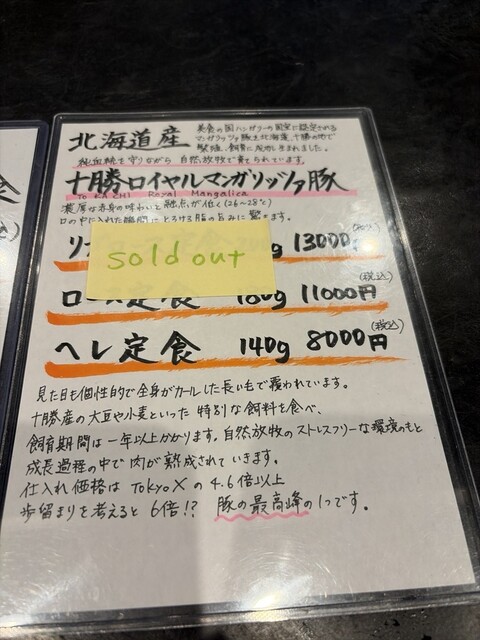 北海道産
美食の国ハンガリーの国宝に認定される
マンガリッツァ豚を北海道、十勝の地で
繁殖、飼育に成功しました。
純血統を守りながら 自然放牧で育てられています。
十勝ロイヤルマンガリッツァ豚
TOKACHI Royal Mangalica
濃厚な赤身の味わいと融点が低く(26〜28℃)
口の中に入れた瞬間にとろける脂の旨みに驚きます。
リ
g 13000円
sold out
ロース定食 180g 11000円(税込)
ヘレ定食 140g 8000円(税込)
見た目も個性的で全身がカールした長い毛で覆われています。
十勝産の大豆や小麦といった 特別な飼料を食べ、
飼育期間は一年以上かかります。自然放牧のストレスフリーな環境のもと
成長過程の中で肉が熟成されていきます。
仕入れ価格は TokyoXの4.6倍以上
歩留まりを考えると6倍!? 豚の最高峰の1つです。